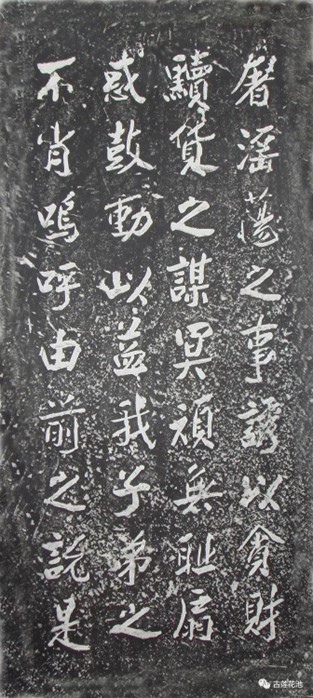 奢滛蕩之事誘以貪財
黷貨之謀冥頑無耻扇
惑鼓動以益我子弟之
不肖嗚呼由前之說是
古莲花池